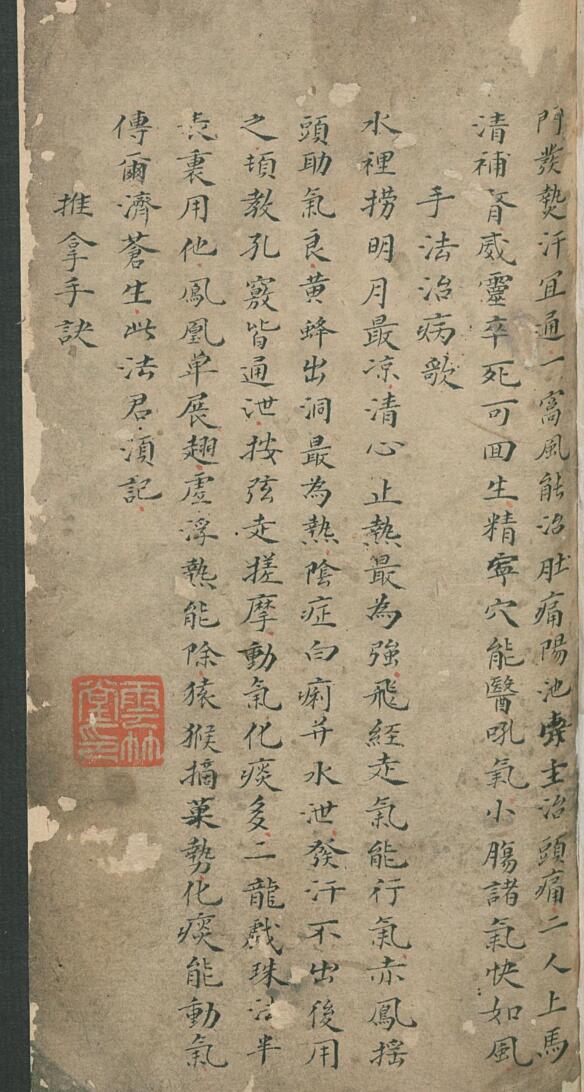 門發热汗宜通一窩風能治肚痛陽池穴主治頭痛二人上馬
清補腎威靈卒死可回生精寧穴能醫吼氣小腸諸氣快如風
手法治病歌
水裡捞明月最凉清心止熱最為強飛經走氣能行氣赤鳳搖
頭助氣良黄蜂出洞最為熱陰症白痢并水泄發汗不出後用
之頓教孔竅皆通泄按弦走搓摩動氣化痰多二龍戲珠治半
表裏用他鳳凰单展翅虚浮熱能除猿猴摘菓勢化痰能動氣
傳爾濟蒼生此法君須記
推拿手訣
雲林堂印